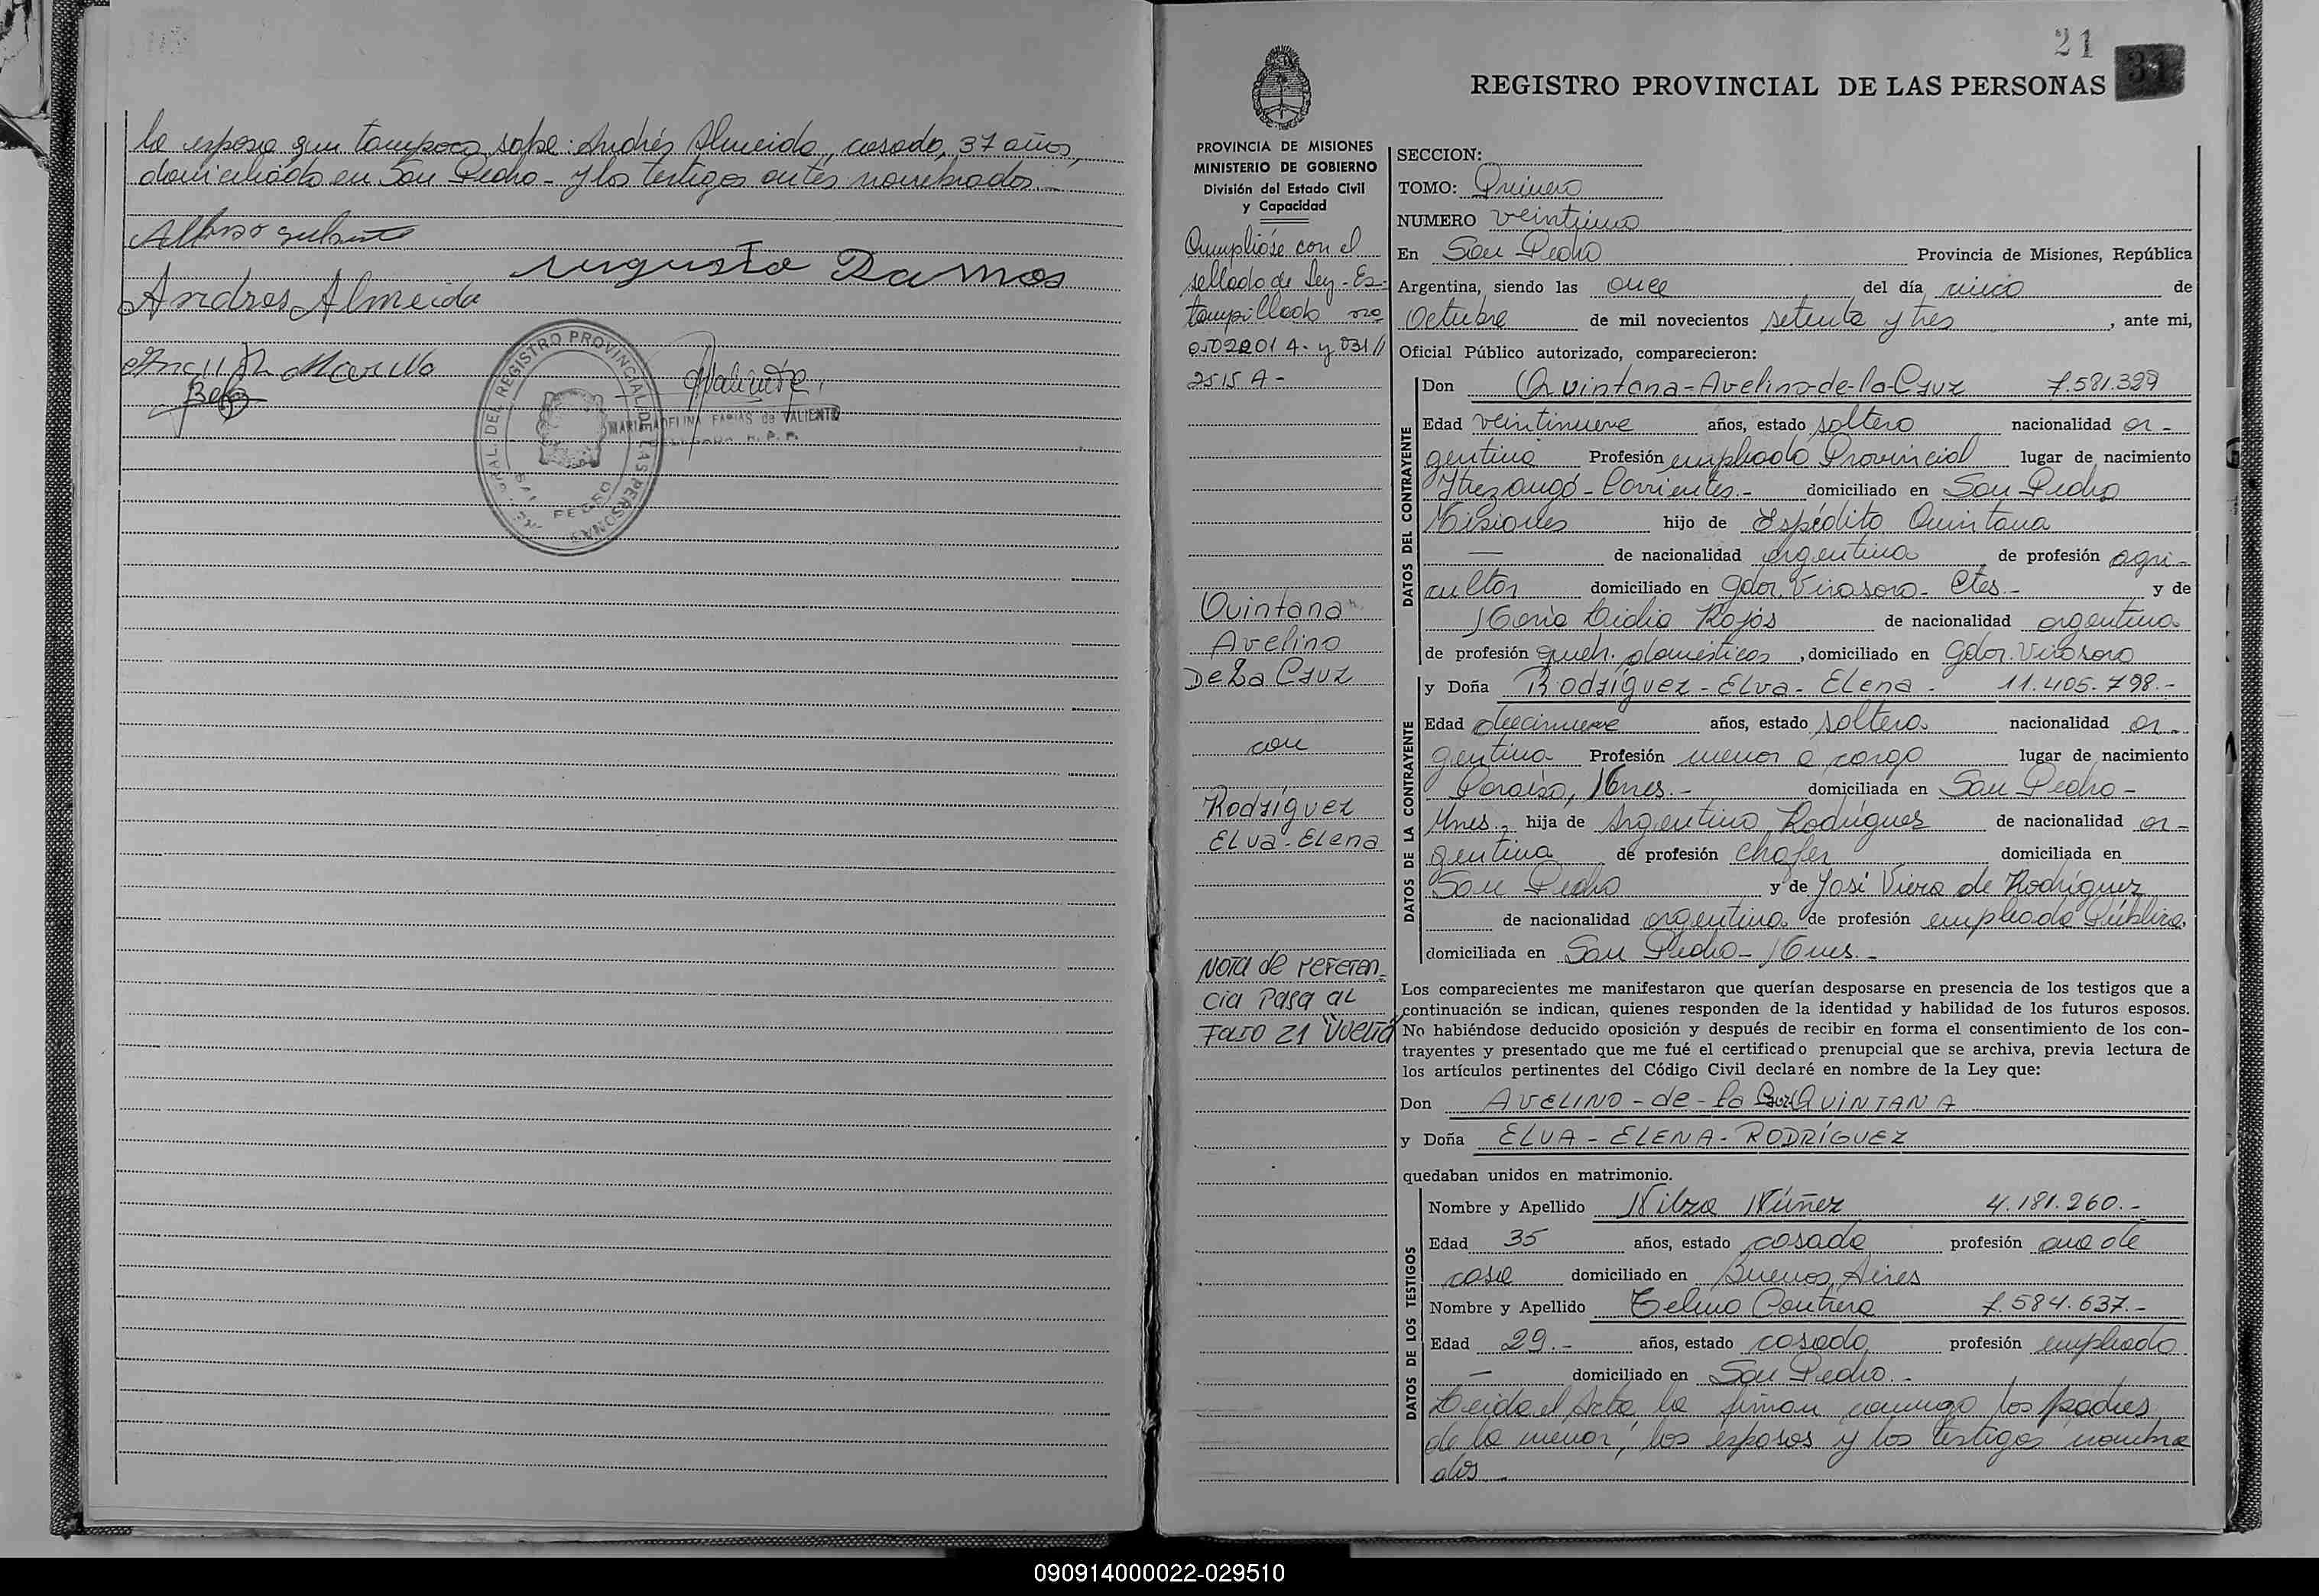 la esposa que tampoco sabe: Andrés Almeida, casado, 37 años,
domiciliado en San Pedro - y los testigos antes nombrados.-
Augusto Ramos
Andres Almeida
REGISTRO PROVINCIAL DE LAS PERSONAS
SAN PEDRO
MARIA ADELINA FARIAS de VALIENTE
21
REGISTRO PROVINCIAL DE LAS PERSONAS
PROVINCIA DE MISIONES
MINISTERIO DE GOBIERNO
División del Estado Civil
y Capacidad
Cumplióse con el
sellado de Ley - Es-
tampillado nro
0502201 A- y 031//
2515 A-
Quintana
Avelino
De La Cruz
con
Rodríguez
Elva-Elena
Nota de referen-
cia Pasa al
Folio 21 Vuelta
SECCION:
TOMO: Primero
NUMERO veintiuno
En San Pedro Provincia de Misiones, República
Argentina, siendo las once del día cinco de
Octubre de mil novecientos setenta y tres, ante mi,
Oficial Público autorizado, comparecieron:
DATOS DEL CONTRAYENTE
Don Quintana-Avelino-de-la-Cruz 7.581.329
Edad veintinueve años, estado soltero nacionalidad ar-
gentina Profesión empleado Provincial lugar de nacimiento
Ituzaingó - Corrientes.- domiciliado en San Pedro
Misiones hijo de Espédito Quintana
— de nacionalidad argentina de profesión agri-
cultor domiciliado en Gdor. Virasoro - Ctes.- y de
María Lidia Rojas de nacionalidad argentina
de profesión queh. domésticos, domiciliado en Gdor. Virasoro
DATOS DE LA CONTRAYENTE
y Doña Rodríguez-Elva-Elena- 11.405.798.-
Edad diecinueve años, estado soltera nacionalidad ar-
gentina Profesión menor a cargo lugar de nacimiento
Paraíso, Mnes.- domiciliada en San Pedro-
Mnes.- hija de Argentino Rodríguez de nacionalidad ar-
gentina de profesión chofer domiciliada en
San Pedro y de José Viera de Rodríguez
de nacionalidad argentina de profesión empleada Pública
domiciliada en San Pedro - Mnes.-
Los comparecientes me manifestaron que querían desposarse en presencia de los testigos que a
continuación se indican, quienes responden de la identidad y habilidad de los futuros esposos.
No habiéndose deducido oposición y después de recibir en forma el consentimiento de los con-
trayentes y presentado que me fué el certificado prenupcial que se archiva, previa lectura de
los artículos pertinentes del Código Civil declaré en nombre de la Ley que:
Don AVELINO-de-la Cruz QUINTANA
y Doña ELVA-ELENA-RODRÍGUEZ
quedaban unidos en matrimonio.
DATOS DE LOS TESTIGOS
Nombre y Apellido Nilza Núñez 4.181.260.-
Edad 35 años, estado casada profesión ama de
casa domiciliado en Buenos Aires
Nombre y Apellido Telmo Contrera 7.584.637.-
Edad 29.- años, estado casado profesión empleado
— domiciliado en San Pedro.-
Leida el Acta, la firman conmigo los padres
de la menor, los esposos y los testigos nombra
dos.-
090914000022-029510